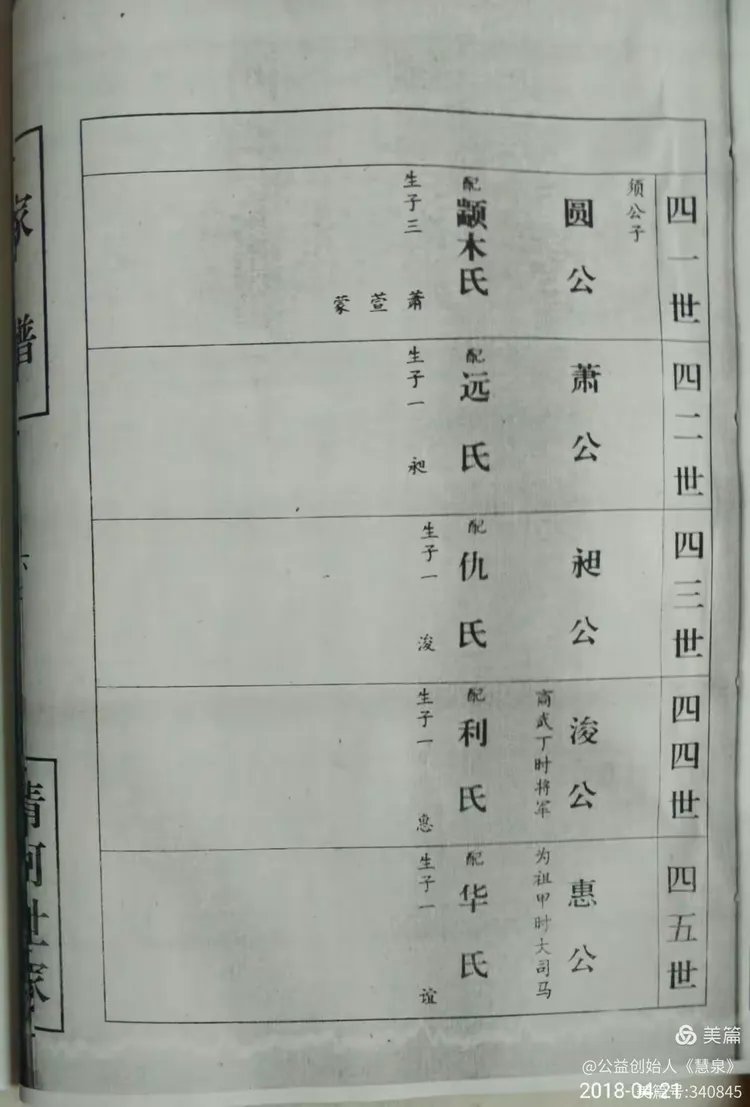 四一世
须公子
圆公
配颛木氏
生子三 萧 萱 蒙
四二世
萧公
配远氏
生子一 昶
四三世
昶公
配仇氏
生子一 浚
四四世
浚公
商武丁时将军
配利氏
生子一 惠
四五世
惠公
为祖甲时大司马
配华氏
生子一 谊
家谱
清河世家
美篇
@公益创始人《慧泉》
2018-04-21
美篇号:340845